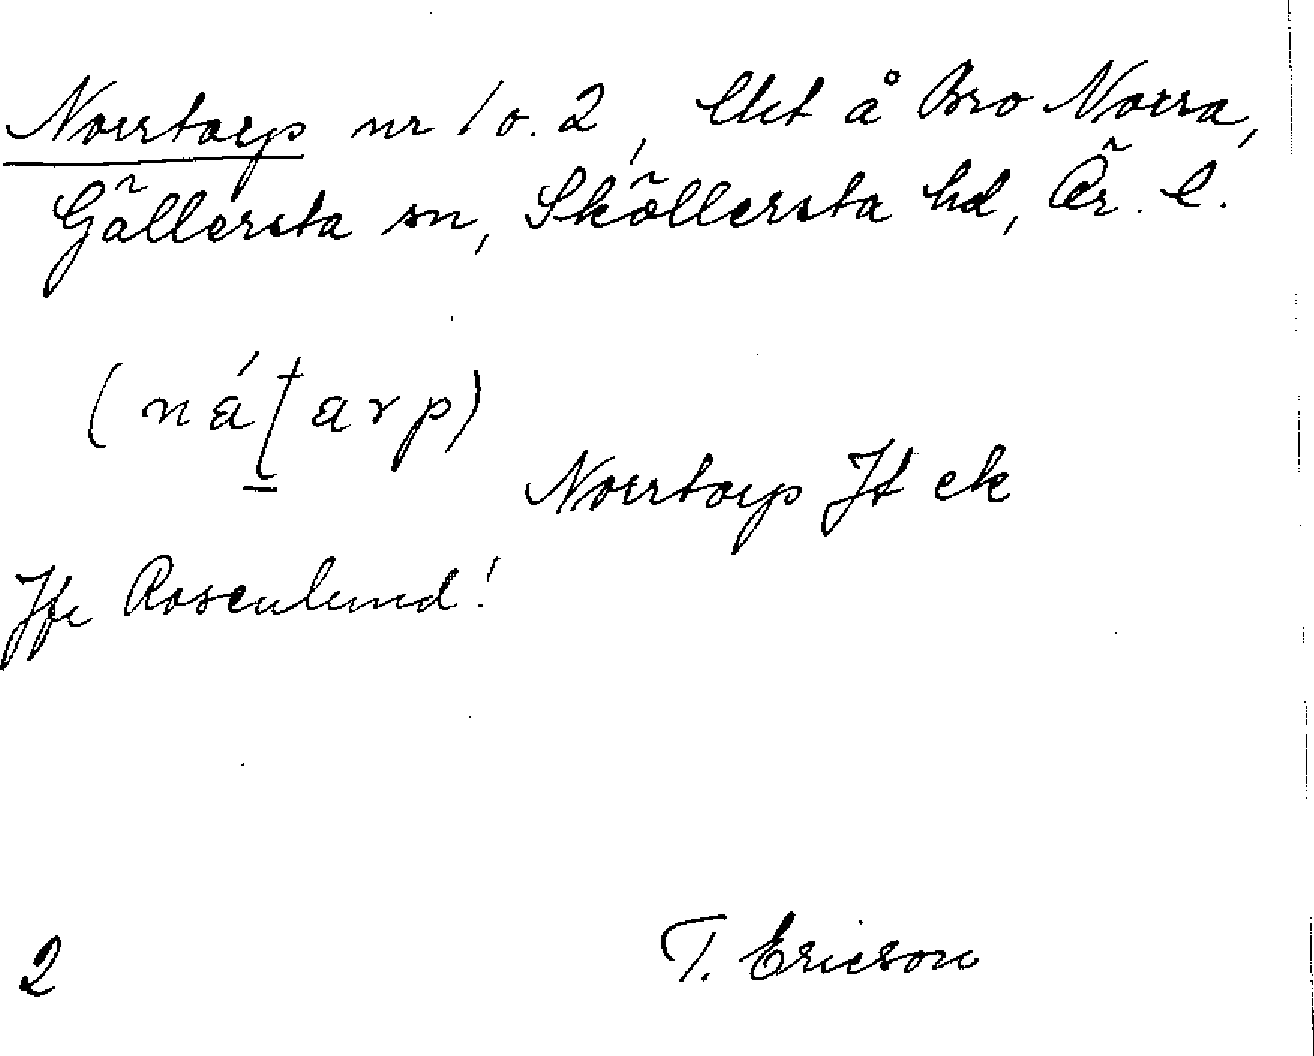 Norrtorp nr 1 o. 2, lht å Bro Norra,
Gällersta sn, Sköllersta hd, Ör. l.
(ná arp)
Norrtorp Jt ek
Jfr Rosenlund!
2 T. Ericson